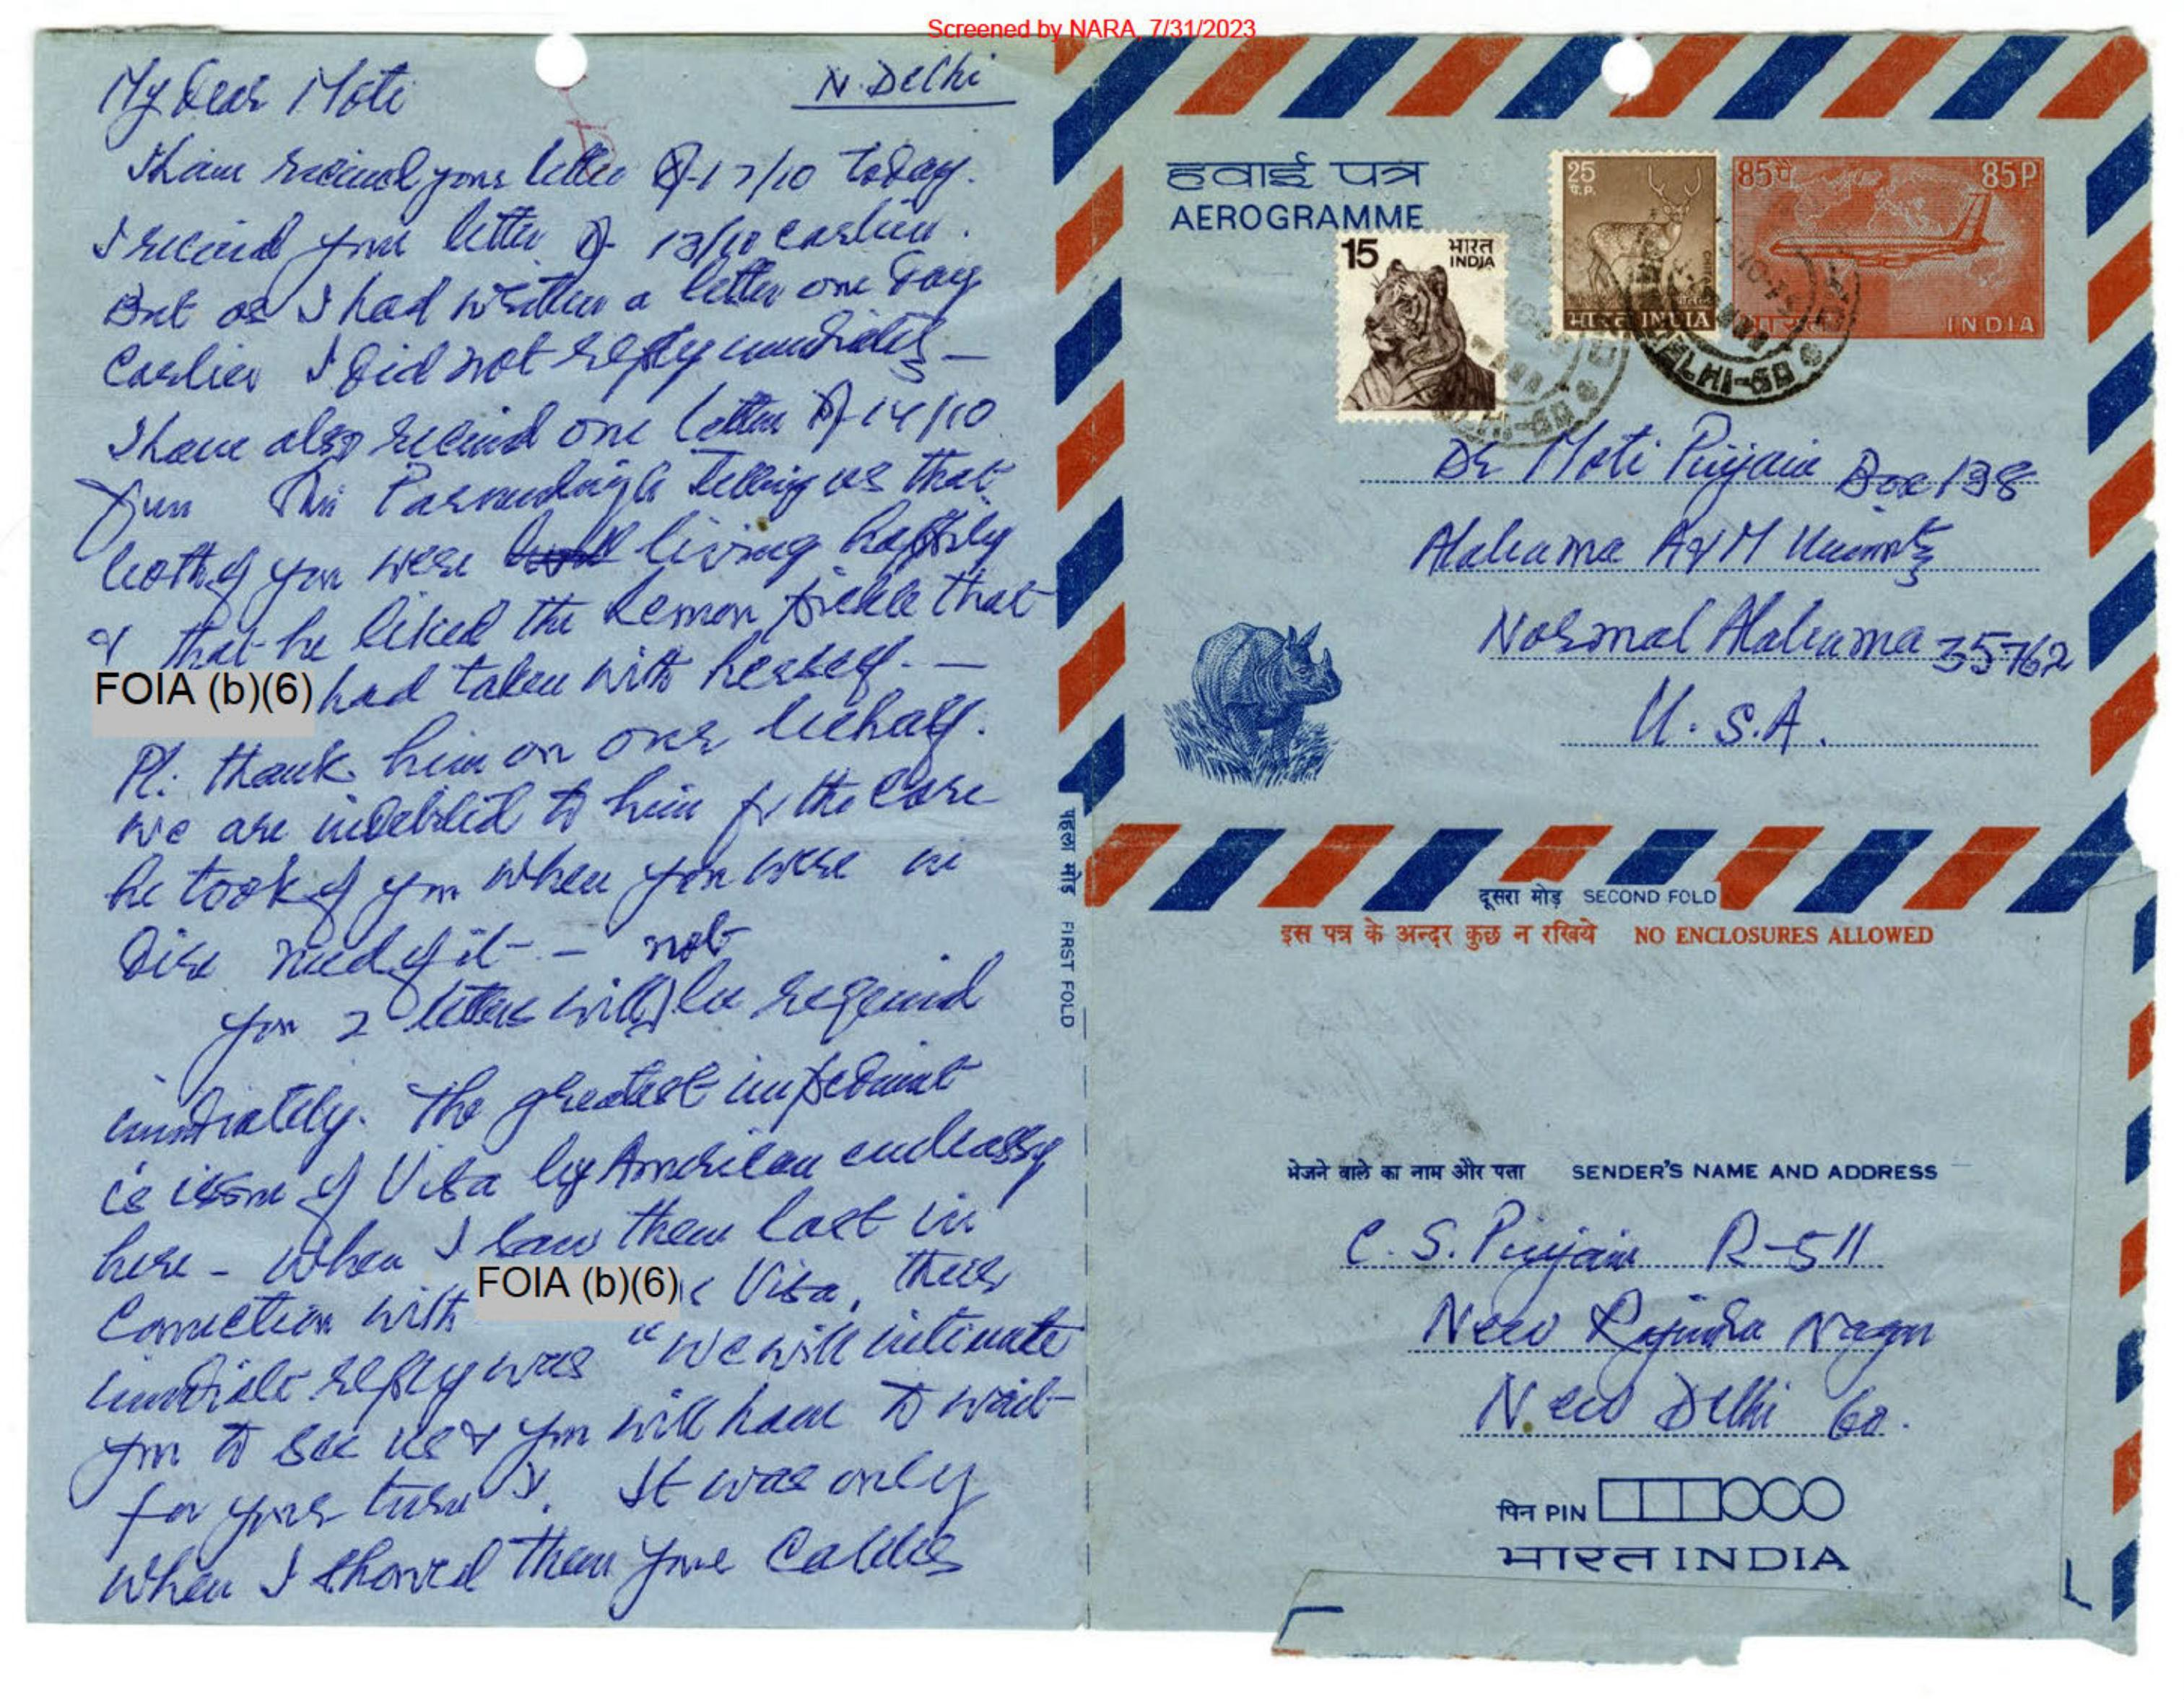 Screened by NARA, 7/31/2023
My Dear Moti
N. Delhi
I have received your letter of 17/10 today.
I received your letter of 13/10 earlier.
But as I had written a letter one day
earlier I did not reply immediately –
I have also received one letter of 14/10
from Shri telling us that
both of you were living happily
& that he liked the Lemon pickle that
FOIA (b)(6) had taken with herself. —
Pl. thank him on our behalf.
We are indebted to him for the care
he took of you when you were in
dire need of it – –
not
your 2 letters will be required
immediately. The greatest impediment
is issue of Visa by American embassy
here – when I saw them last in
connection with FOIA (b)(6) Visa, their
immediate reply was "We will intimate
you to see us & you will have to wait
for your turn". It was only
when I showed them your cables
हवाई पत्र
AEROGRAMME
15 भारत INDIA
25 प.P. भारत INDIA
85पै 85P
भारत INDIA
DELHI-60
Dr Moti Pinjani Box 138
Alabama A&M University
Normal Alabama 35762
U. S. A.
पहला मोड़ FIRST FOLD
दूसरा मोड़ SECOND FOLD
इस पत्र के अन्दर कुछ न रखिये NO ENCLOSURES ALLOWED
भेजने वाले का नाम और पता SENDER'S NAME AND ADDRESS
C. S. Pinjani R-511
New Rajindra Nagar
New Delhi 60.
पिन PIN
भारत INDIA